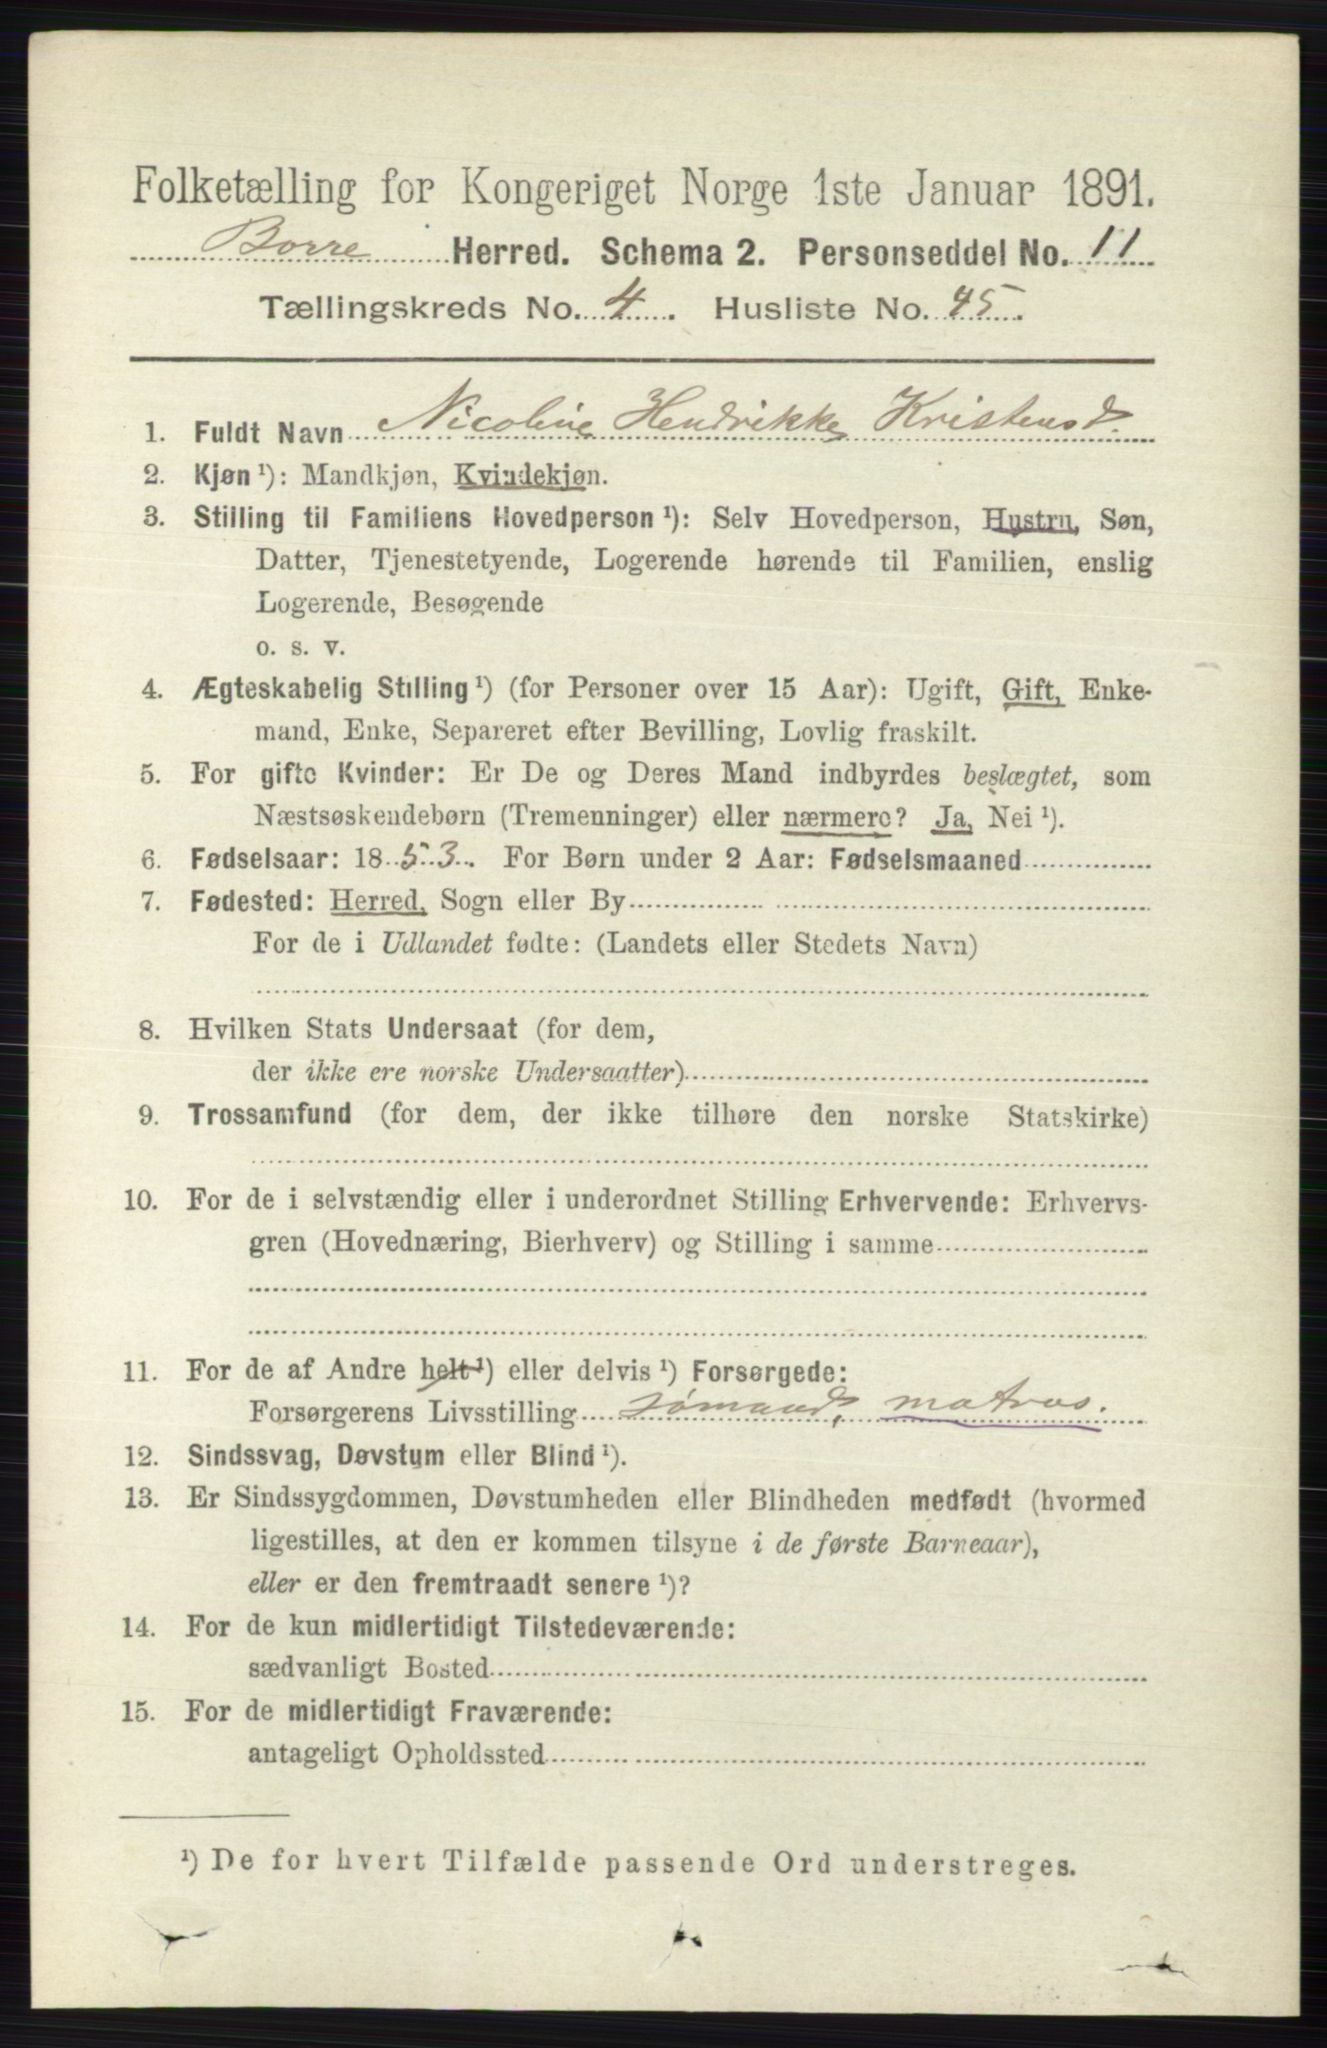 Folketælling for Kongeriget Norge 1ste Januar 1891.
Borre Herred. Schema 2. Personseddel No. 11
Tællingskreds No. 4. Husliste No. 45.
1. Fuldt Navn Nicoline Hendrikke Kristensd.
2. Kjøn ¹): Mandkjøn, Kvindekjøn.
3. Stilling til Familiens Hovedperson ¹): Selv Hovedperson, Hustru, Søn,
Datter, Tjenestetyende, Logerende hørende til Familien, enslig
Logerende, Besøgende
o. s. v.
4. Ægteskabelig Stilling ¹) (for Personer over 15 Aar): Ugift, Gift, Enke-
mand, Enke, Separeret efter Bevilling, Lovlig fraskilt.
5. For gifte Kvinder: Er De og Deres Mand indbyrdes beslægtet, som
Næstsøskendebørn (Tremenninger) eller nærmere? Ja, Nei ¹).
6. Fødselsaar: 1853. For Børn under 2 Aar: Fødselsmaaned
7. Fødested: Herred, Sogn eller By
For de i Udlandet fødte: (Landets eller Stedets Navn)
8. Hvilken Stats Undersaat (for dem,
der ikke ere norske Undersaatter)
9. Trossamfund (for dem, der ikke tilhøre den norske Statskirke)
10. For de i selvstændig eller i underordnet Stilling Erhvervende: Erhvervs-
gren (Hovednæring, Bierhverv) og Stilling i samme
11. For de af Andre helt ¹) eller delvis ¹) Forsørgede:
Forsørgerens Livsstilling sømand, matros.
12. Sindssvag, Døvstum eller Blind ¹).
13. Er Sindssygdommen, Døvstumheden eller Blindheden medfødt (hvormed
ligestilles, at den er kommen tilsyne i de første Barneaar),
eller er den fremtraadt senere ¹)?
14. For de kun midlertidigt Tilstedeværende:
sædvanligt Bosted
15. For de midlertidigt Fraværende:
antageligt Opholdssted
¹) De for hvert Tilfælde passende Ord understreges.